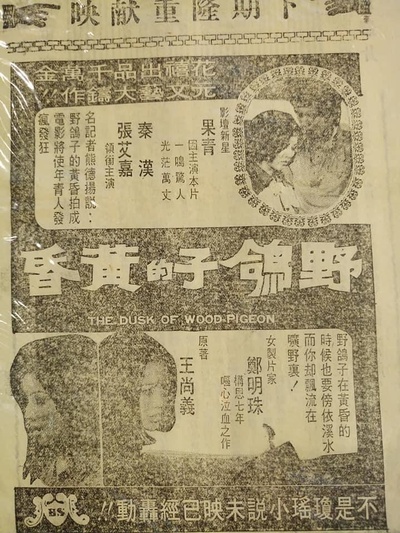 下期隆重献映
花禧出品千萬金
元文藝大鑄作!!
影壇新星
果青
因主演本片
一鳴驚人
光茫萬丈
秦漢
張艾嘉
領銜主演
名記者熊德揚說：
野鴿子的黃昏拍成
電影將使年青人發
瘋發狂
野鴿子的黃昏
THE DUSK OF WOOD-PIGEON
野鴿子在黃昏的
時候也要傍依溪水
而你却飄流在
曠野裏！
女製片家
鄭明珠
構思七年
嘔心泣血之作
原著
王尚義
不是瓊瑤小說未映已經轟動!!
BS